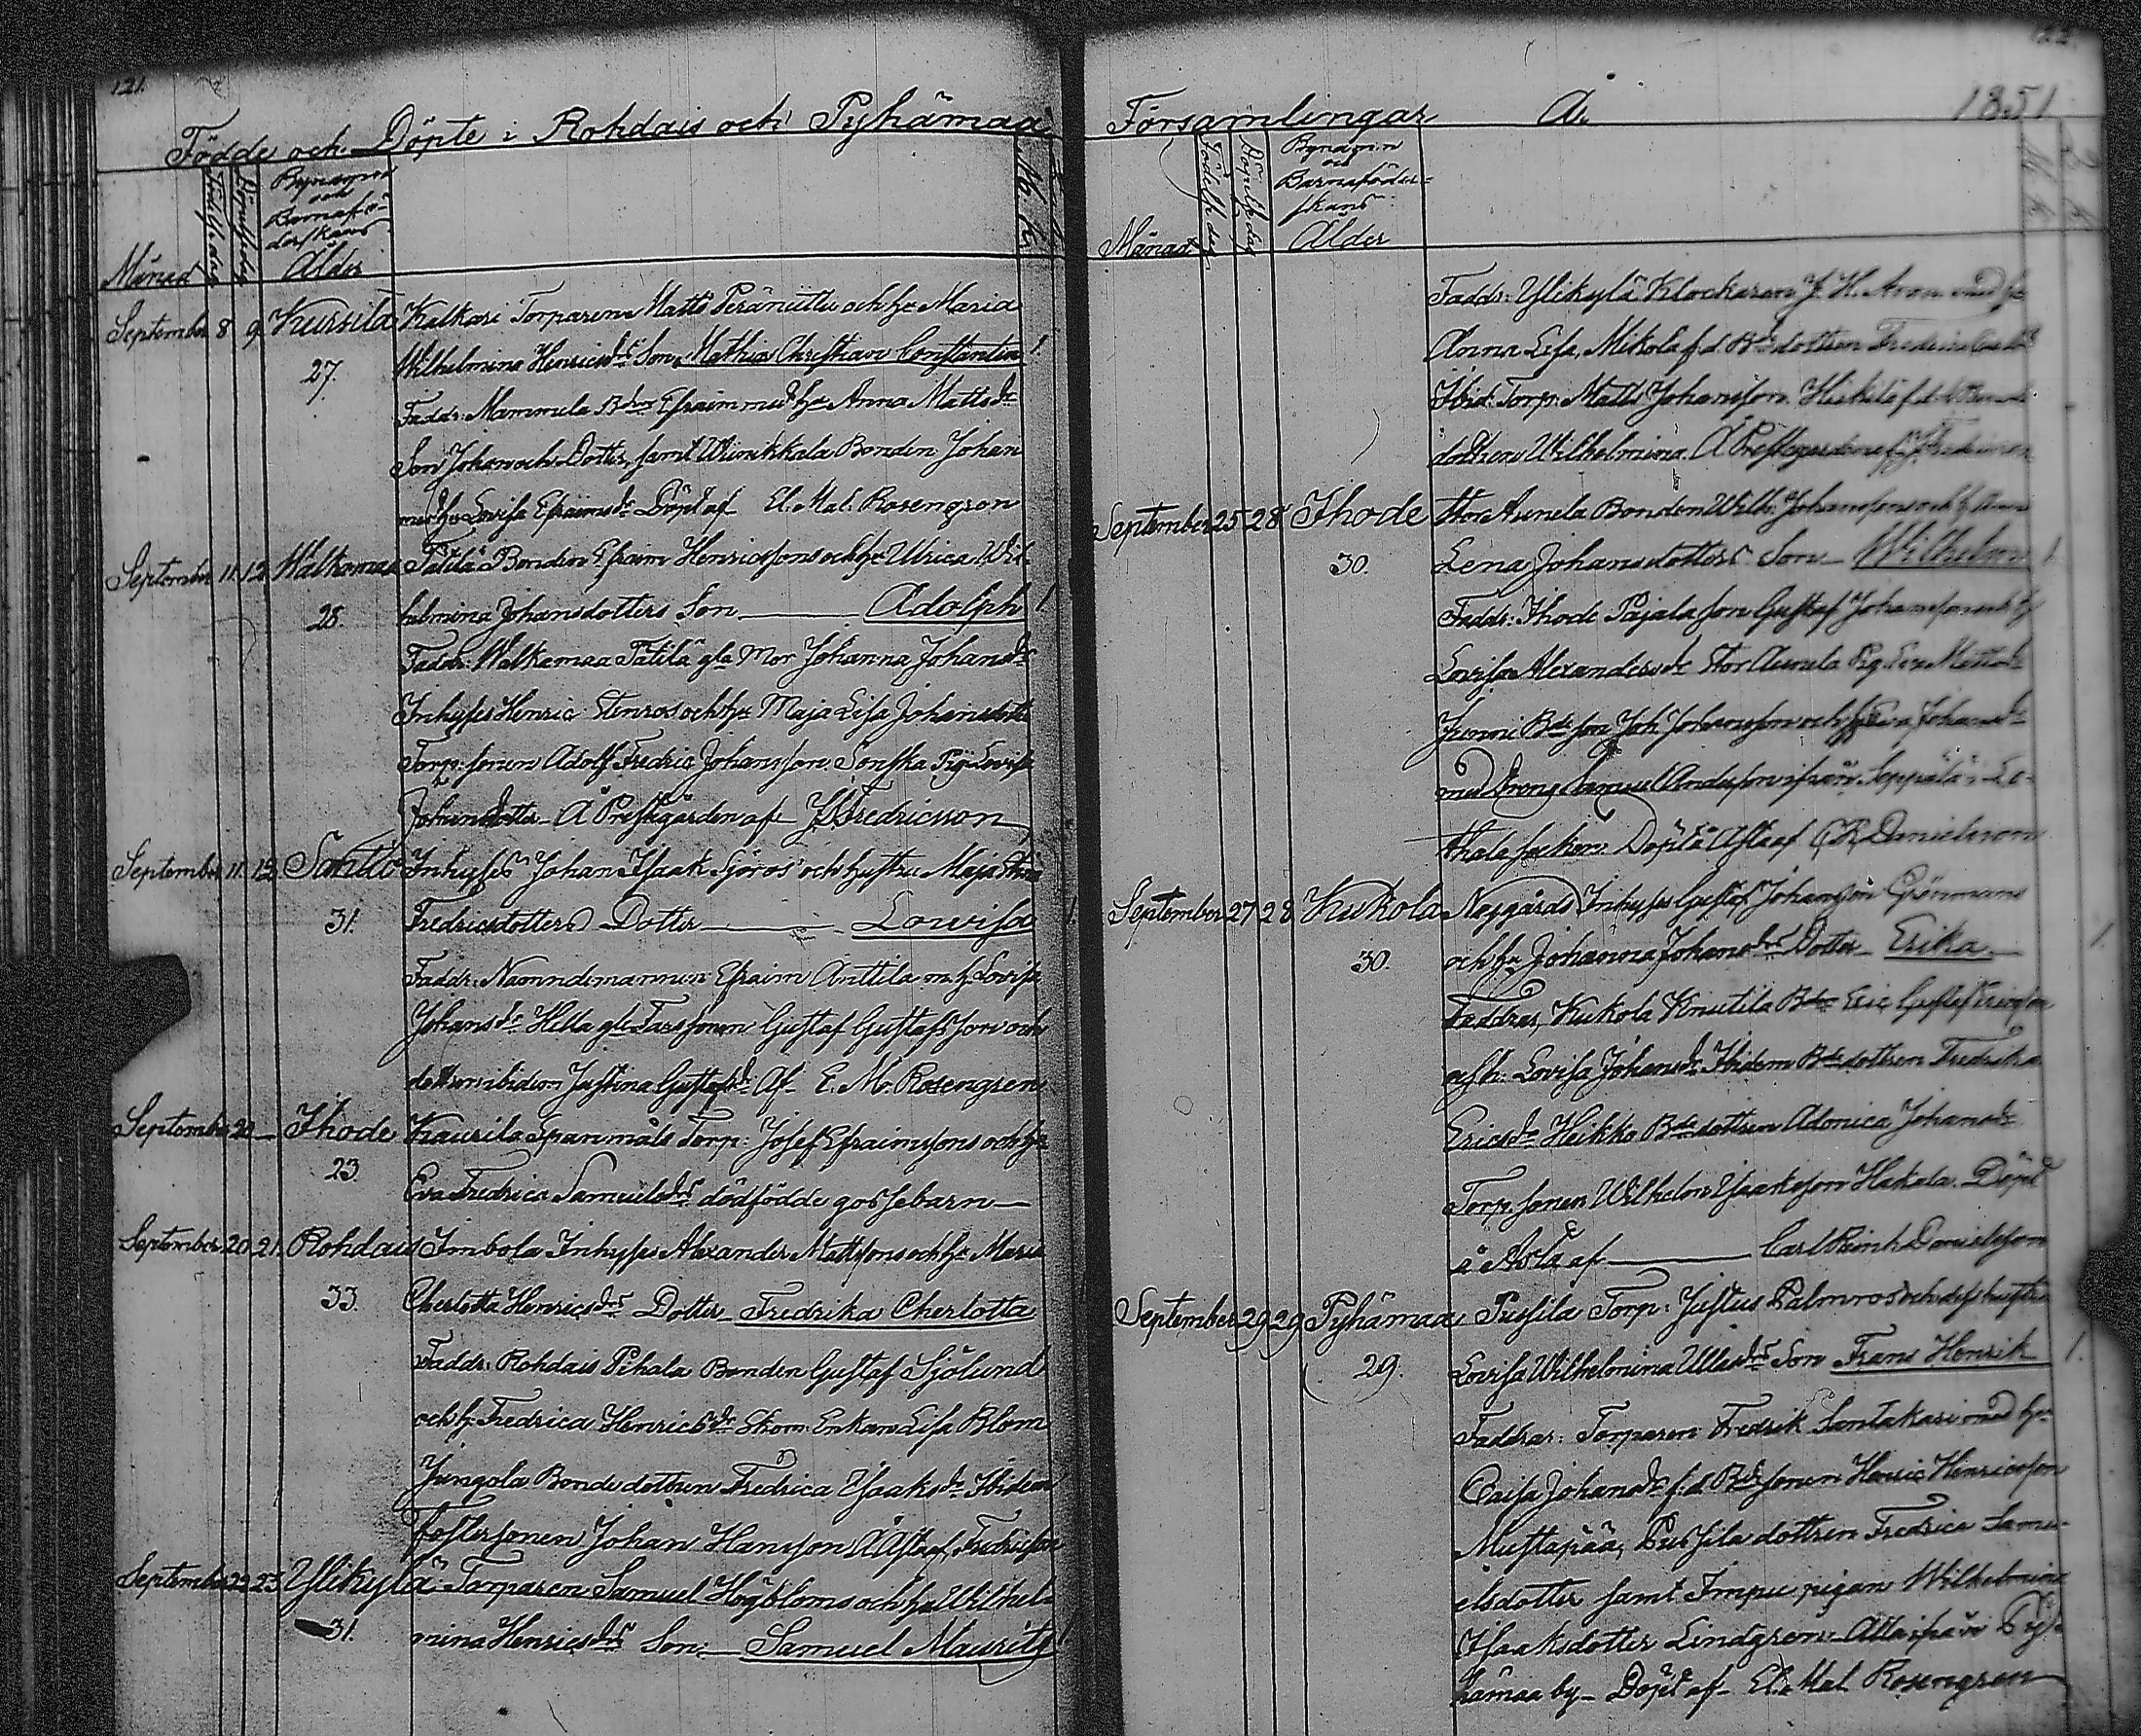 121.
Födde och Döpte i Rohdais och Pyhämaa
Månad Födelsedag Döpelsedag Bynamn och Barnaföderskans Ålder M. K.
September 8 9 Kursila Kalkari Torparen Matts Peräniitus och h:u Maria
27. Wilhelmina Henricsdrs Son Mathias Christian Constantin 1.
Faddr: Mammula Bdn Efraim med h:u Anna Mattsdr
Son Johan och Dotter, samt Bonden Johan
med h:u Lovisa Efraimsdr Döpt af El. Mal. Rosengren
September 11. 12 Walkamaa Tätilä Bonden Efraim Henricssons och h:u Ulrica Wil-
28. helmina Johansdotters Son Adolph 1
Faddr: Walkamaa Tätilä gla Mor Johanna Johansdr
Inhyses Henric Stenros och h:u Maja Lisa Johansdotter
Torp: sonen Adolf Fredric Johansson Pig. Lovisa
Johansdotter Å Prestgården af Fredricsson
September 11. 13 Santio Inhyses Johan Isaak Sjöros och hustru Maja Stina
31. Fredricsdotters Dotter Lowisa 1.
Faddr: Nämndemannen Efraim Anttila m. h. Lovisa
Johansdr Hella gle Fars sonen Gustaf Gustafsson och
dottren ibidem Justina Gustafsdr Af E. M. Rosengren
September 20 Ihode Kaurila Spanmåls Torp: Josef Efraimssons och h:u
23. Eva Fredrica Samuelsdrs dödfödde gossebarn
September 20 21. Rohdais Imbola Inhyses Alexander Mattssons och h:u Maria
33. Cherlotta Henricsdrs Dotter Fredrika Cherlotta
Faddr: Rohdais Pihala Bonden Gustaf Sjölund
och h: Fredrica Henricsdr Skom. Enkan Lisa Blom
Jungola Bonde dottren Fredrica Isaaksdr Ibidem
fostersonen Johan Hansson
September 22 23 Ylikylä Torparen Samuel Högbloms och h:u Wilhel-
31. mina Henricsdrs Son Samuel Mauritz 1
Församlingar År 1851
Månad Födelsedag Döpelsedag Bynamn och Barnaföderskans Ålder M. K.
Faddr: Ylikylä Klockaren J. H. Aron med h:u
Anna Lisa, Mikola f. d. Bde dottren
Ibid: Torp: Matts Johansson,
dottren Wilhelmina. Å Prestgården af
September 25 28 Ihode Stor Aunela Bonden Wilh: Johanssons och h: Anna
30. Lena Johansdotters Son Wilhelm 1
Faddr: Ihode Pajala son Gustaf Johansson och h:
Lovisa Alexandersdr Stor Aunela Pig. Eva Mattsdr
Bde son Joh: Johansson och h: Eva Johansdr
med Dreng Samuel Andersson ifrån Seppälä i Le-
thala socken Döpt å Asta af C R Danielsson
September 27 28 Kukola Näggårds Inhyses Gustaf Johansson Grönmans
30. och h:u Johanna Johansdrs Dotter Erika 1.
Faddrar, Kukola Knutila Bdn Eric Gustaf Ericsson
och h: Lovisa Johansdr Ibidem Bde dottren Fredrika
Ericsdr Heikko Bde dottren Adonica Johansdr
Torp: sonen Wilhelm Isaksson Hakala. Döpt
å Asta af Carl Reinh Danielsson
September 29 29 Pyhämaa Pussila Torp: Justus Palmros och dess hustru
29. Lovisa Wilhelmina Ullesdrs Son Frans Henrik 1.
Faddrar: Torparen Fredrik Santakari med h:u
Caisa Johansdr f. d. Bde sonen Henric Henricsson
Mustapää, Pussila dottren Fredrica Samu-
elsdotter samt Impu pigan Wilhelmina
Isaaksdotter Lindgren. Alla ifrån Py-
hämaa by. Döpt af El. Mal. Rosengren